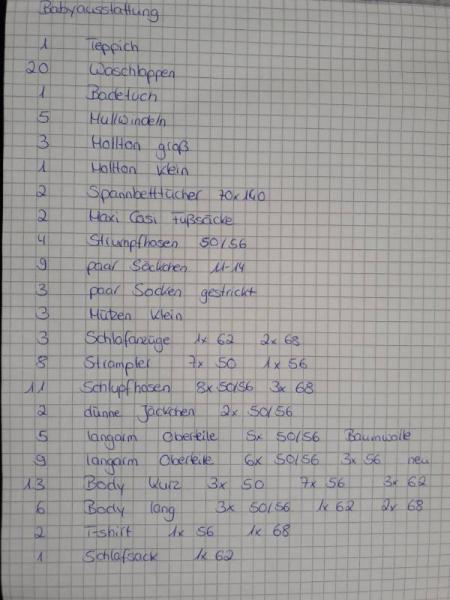 Babyausstattung
1 Teppich
20 Waschlappen
1 Badetuch
5 Mullwindeln
3 Molton groß
1 Molton klein
2 Spannbetttücher 70x140
2 Maxi Cosi Fußsäcke
4 Strumpfhosen 50/56
9 paar Söckchen 11-14
3 paar Socken gestrickt
3 Mützen klein
3 Schlafanzüge 1x 62 2x 68
8 Strampler 7x 50 1x 56
11 Schlupfhosen 8x 50/56 3x 68
2 dünne Jäckchen 2x 50/56
5 langarm Oberteile 5x 50/56 Baumwolle
9 langarm Oberteile 6x 50/56 3x 56 neu
13 Body kurz 3x 50 7x 56 3x 62
6 Body lang 3x 50/56 1x 62 2x 68
2 T-shirt 1x 56 1x 68
1 Schlafsack 1x 62